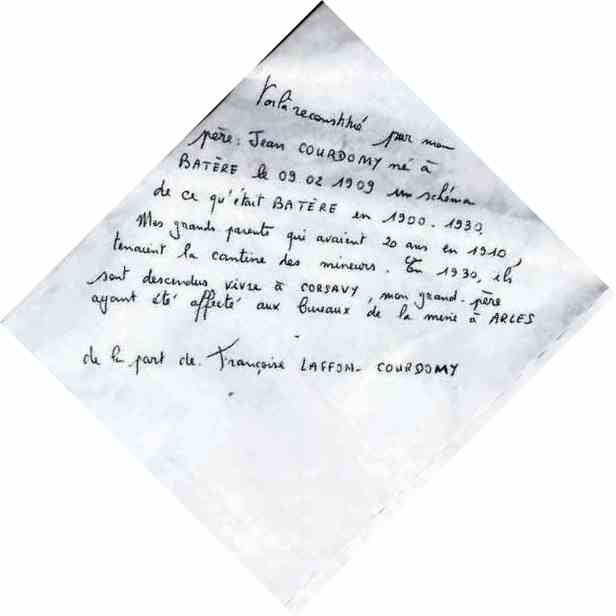 Voilà reconstitué par mon
père : Jean COURDOMY né à
BATÈRE le 09.02 1909 un schéma
de ce qu'était BATÈRE en 1900 - 1930.
Mes grands parents qui avaient 20 ans en 1910,
tenaient la cantine des mineurs. En 1930, ils
sont descendus vivre à CORSAVY, mon grand-père
ayant été affecté aux bureaux de la mine à ARLES
de la part de Françoise LAFFON-COURDOMY